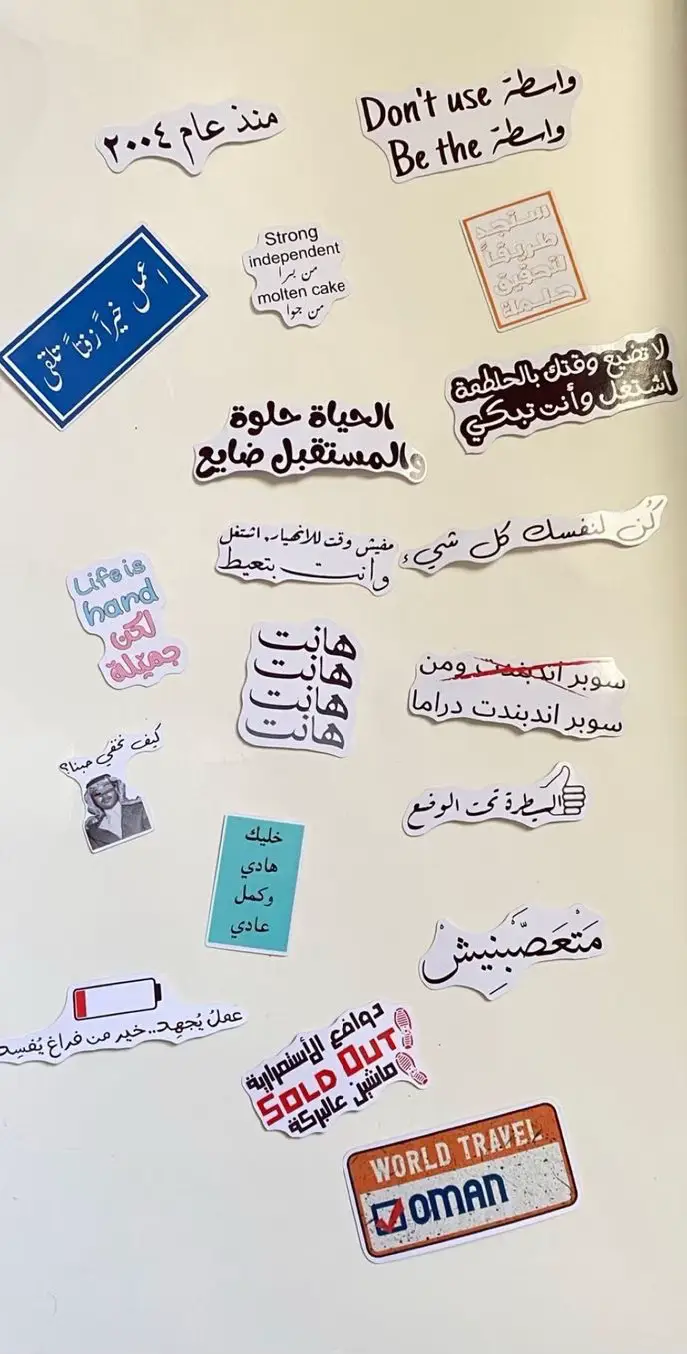 منذ عام ٢٠٠٤
Don't use واسطة
Be the واسطة
اعمل خيراً زفتاً تلقى
Strong
independent
من برا
molten cake
من جوا
ستجد
طريقاً
لتحقيق
حلمك
لا تضيع وقتك بالحلطمة
اشتغل وأنت تبكي
الحياة حلوة
والمستقبل ضايع
مفيش وقت للانهيار، اشتغل
وانت بتعيط
كُن لنفسك كل شيء
Life is
hard
لكن
جميلة
هانت
هانت
هانت
هانت
سوبر اندبندت ومن
سوبر اندبندت دراما
كيف نخفي حبنا؟
السيطرة تحت الوضع
خليك
هادي
وكمل
عادي
مَتْعَصَّبْنِيشْ
عملُ يُجهِد..خير من فراغ يُفسِد
دوافع الأستمرارية
SOLD OUT
ماشين عالبركة
WORLD TRAVEL
OMAN